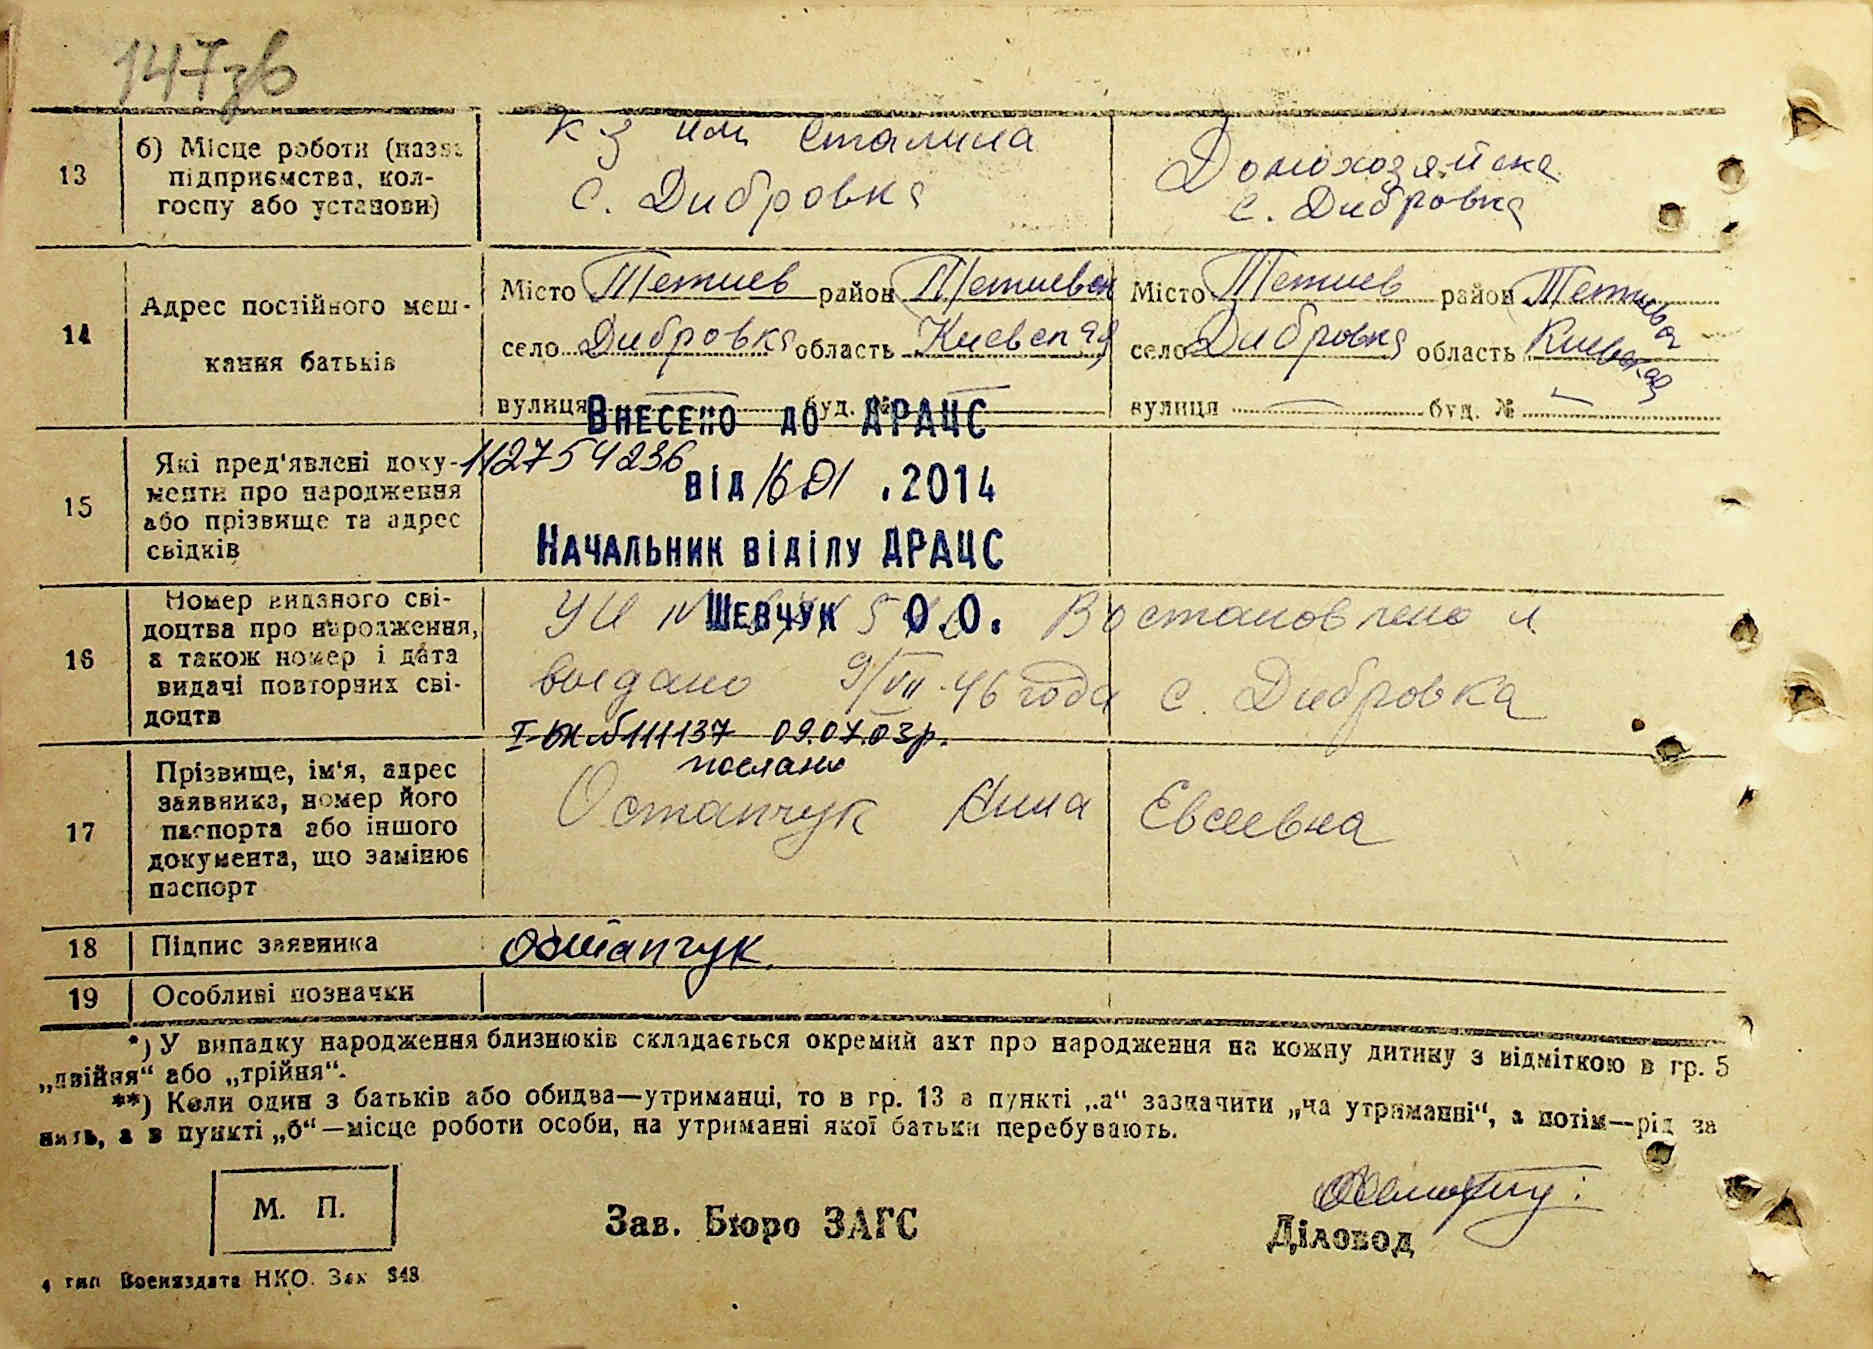 147зв
13
б) Місце роботи (назва
підприємства, кол-
госпу або установи)
к-з им Сталина
с. Дибровка
Домохозяйска
с. Дибровка
14
Адрес постійного меш-
кання батьків
Місто Тетиев район Тетиевск
село Дибровка область Киевская
вулиця — буд. №
Місто Тетиев район Тетиевск
село Дибровка область Киевская
вулиця — буд. № —
Внесено до ДРАЦС
112754236
від 16 01 .2014
Начальник відділу ДРАЦС
Шевчук О.О.
15
Які пред'явлені доку-
менти про народження
або прізвище та адрес
свідків
16
Номер виданого сві-
доцтва про народження,
а також номер і дата
видачі повторних сві-
доцтв
УИ IV
Востановлено
выдано 9/VII-46 года с. Дибровка
I-БК №111137 09.07.03р.
послано
17
Прізвище, ім'я, адрес
заявника, номер його
паспорта або іншого
документа, що замінює
паспорт
Остапчук Нина Евсеевна
18
Підпис заявника
Остапчук
19
Особливі позначки
*) У випадку народження близнюків складається окремий акт про народження на кожну дитину з відміткою в гр. 5
„двійня“ або „трійня“.
**) Коли один з батьків або обидва—утриманці, то в гр. 13 в пункті „а“ зазначити „на утриманні“, а потім—рід за
нять, а в пункті „б“—місце роботи особи, на утриманні якої батьки перебувають.
М. П.
Зав. Бюро ЗАГС
Діловод
4 тип Воениздата НКО. Зак 348